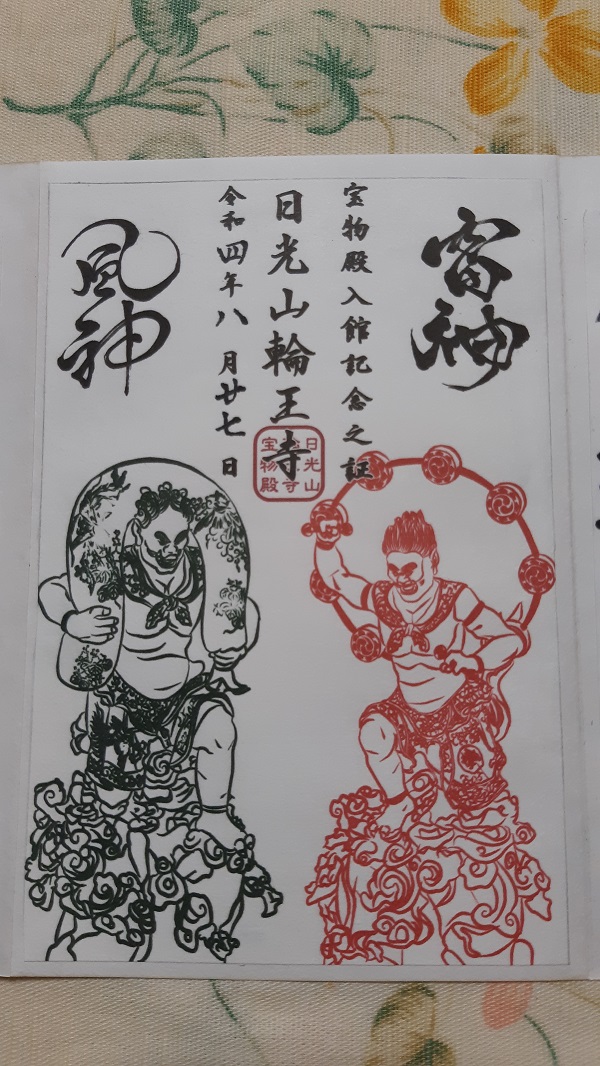 雷神
宝物殿入館記念之証
日光山輪王寺
令和四年八月廿七日
風神
日光山
宝物殿